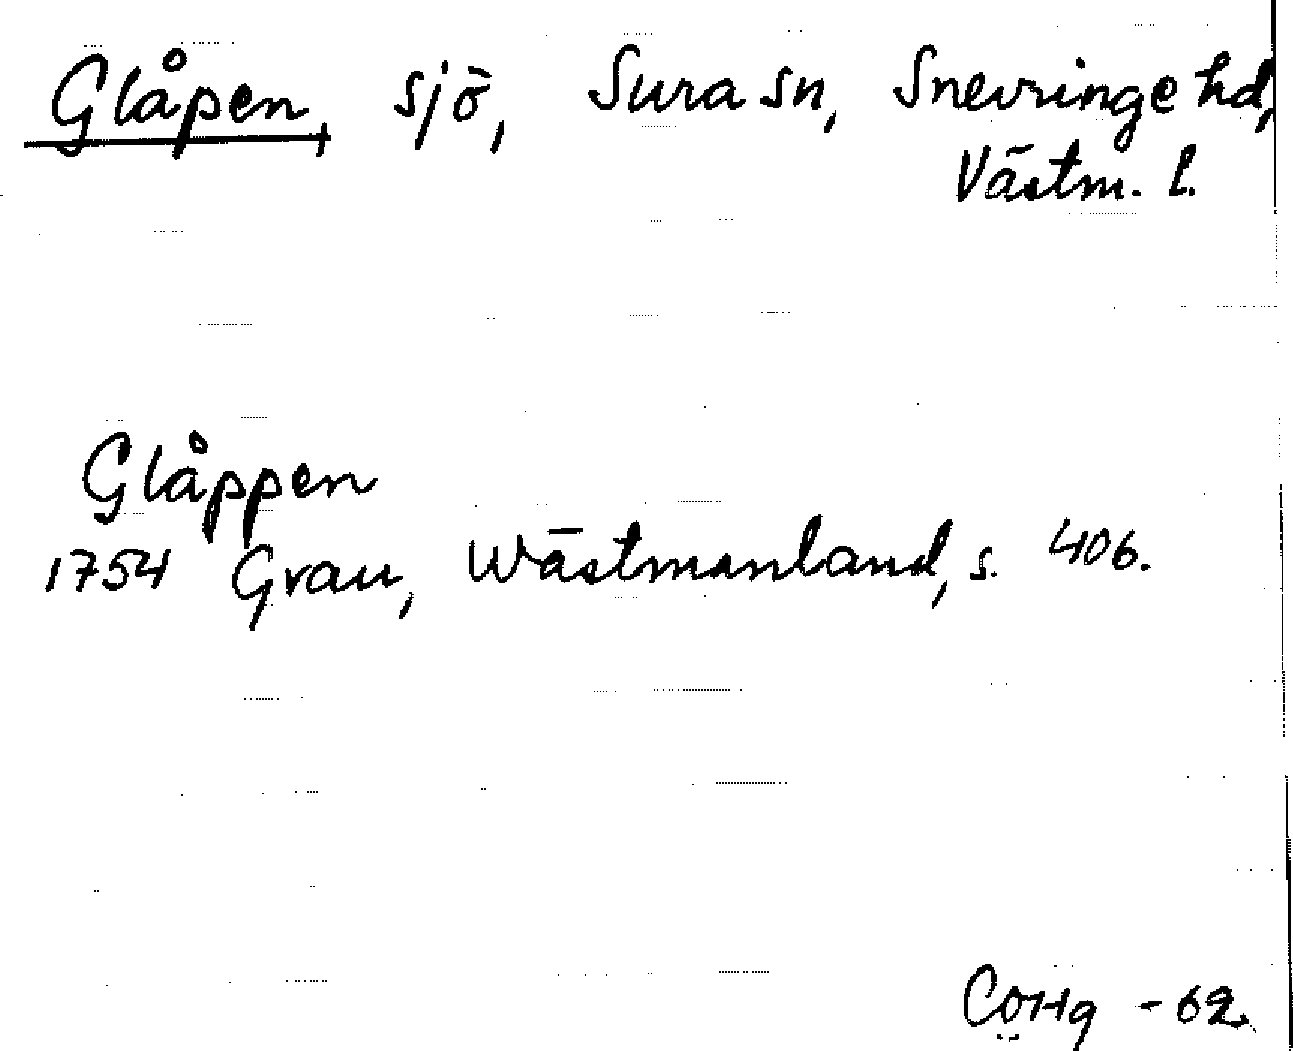 Glåpen, sjö, Sura sn, Snevringe hd,
Västm. l.
Glåppen
1754 Grau, Wästmanland, s. 406.
CÖHg -62.